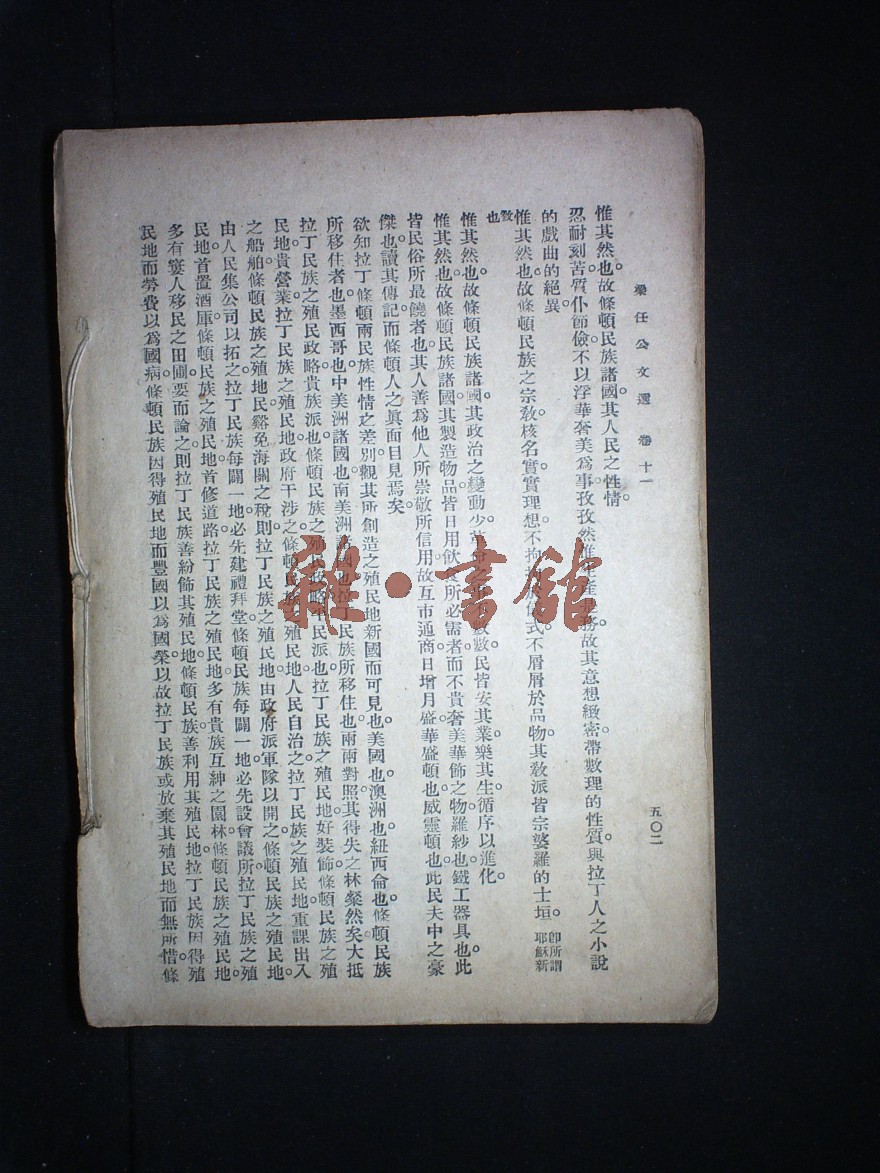 梁任公文選 卷十一
五〇二
惟其然也。故條頓民族諸國。其人民之性情。
忍耐刻苦。質仆節儉。不以浮華奢美爲事。孜孜然惟務。故其意想緻密。帶數理的性質。與拉丁人之小說
的戲曲的絕異。
惟其然也。故條頓民族之宗教。核名實。實理想。不拘儀式。不屑屑於品物。其教派皆宗婆羅的士垣。卽所謂耶穌新
教也
惟其然也。故條頓民族諸國。其政治之變動少。革命之數數。民皆安其業。樂其生。循序以進化。
惟其然也。故條頓民族諸國。其製造物品。皆日用飲食所必需者。而不貴奢美華飾之物。羅紗也。鐵工器具也。此
皆民俗所最饒者也。其人善爲他人所崇敬所信用。故互市通商。日增月盛。華盛頓也。威靈頓也。此民夫中之豪
傑也。讀其傳記。而條頓人之眞面目見焉矣。
欲知拉丁條頓兩民族性情之差別。觀其所創造之殖民地新國而可見也。美國也。澳洲也。紐西侖也。條頓民族
所移住者也。墨西哥也。中美洲諸國也。南美洲諸國也。拉丁民族所移住也。兩兩對照。其得失之林。燦然矣。大抵
拉丁民族之殖民政略。貴族派也。條頓民族之殖民政略。平民派也。拉丁民族之殖民地。好裝飾。條頓民族之殖
民地。貴營業。拉丁民族之殖民地。政府干涉之。條頓民族之殖民地。人民自治之。拉丁民族之殖民地。重課出入
之船舶。條頓民族之殖民地。豁免海關之稅則。拉丁民族之殖民地。由政府派軍隊以開之。條頓民族之殖民地。
由人民集公司以拓之。拉丁民族每闢一地。必先建禮拜堂。條頓民族每闢一地。必先設會議所。拉丁民族之殖
民地。首置酒庫。條頓民族之殖民地。首修道路。拉丁民族之殖民地。多有貴族互紳之園林。條頓民族之殖民地。
多有窶人移民之田圃。要而論之。則拉丁民族善紛飾其殖民地。條頓民族善利用其殖民地。拉丁民族因得殖
民地而勞費。以爲國病。條頓民族因得殖民地而豐國。以爲國榮。以故拉丁民族或放棄其殖民地而無所惜。條
雜·書館